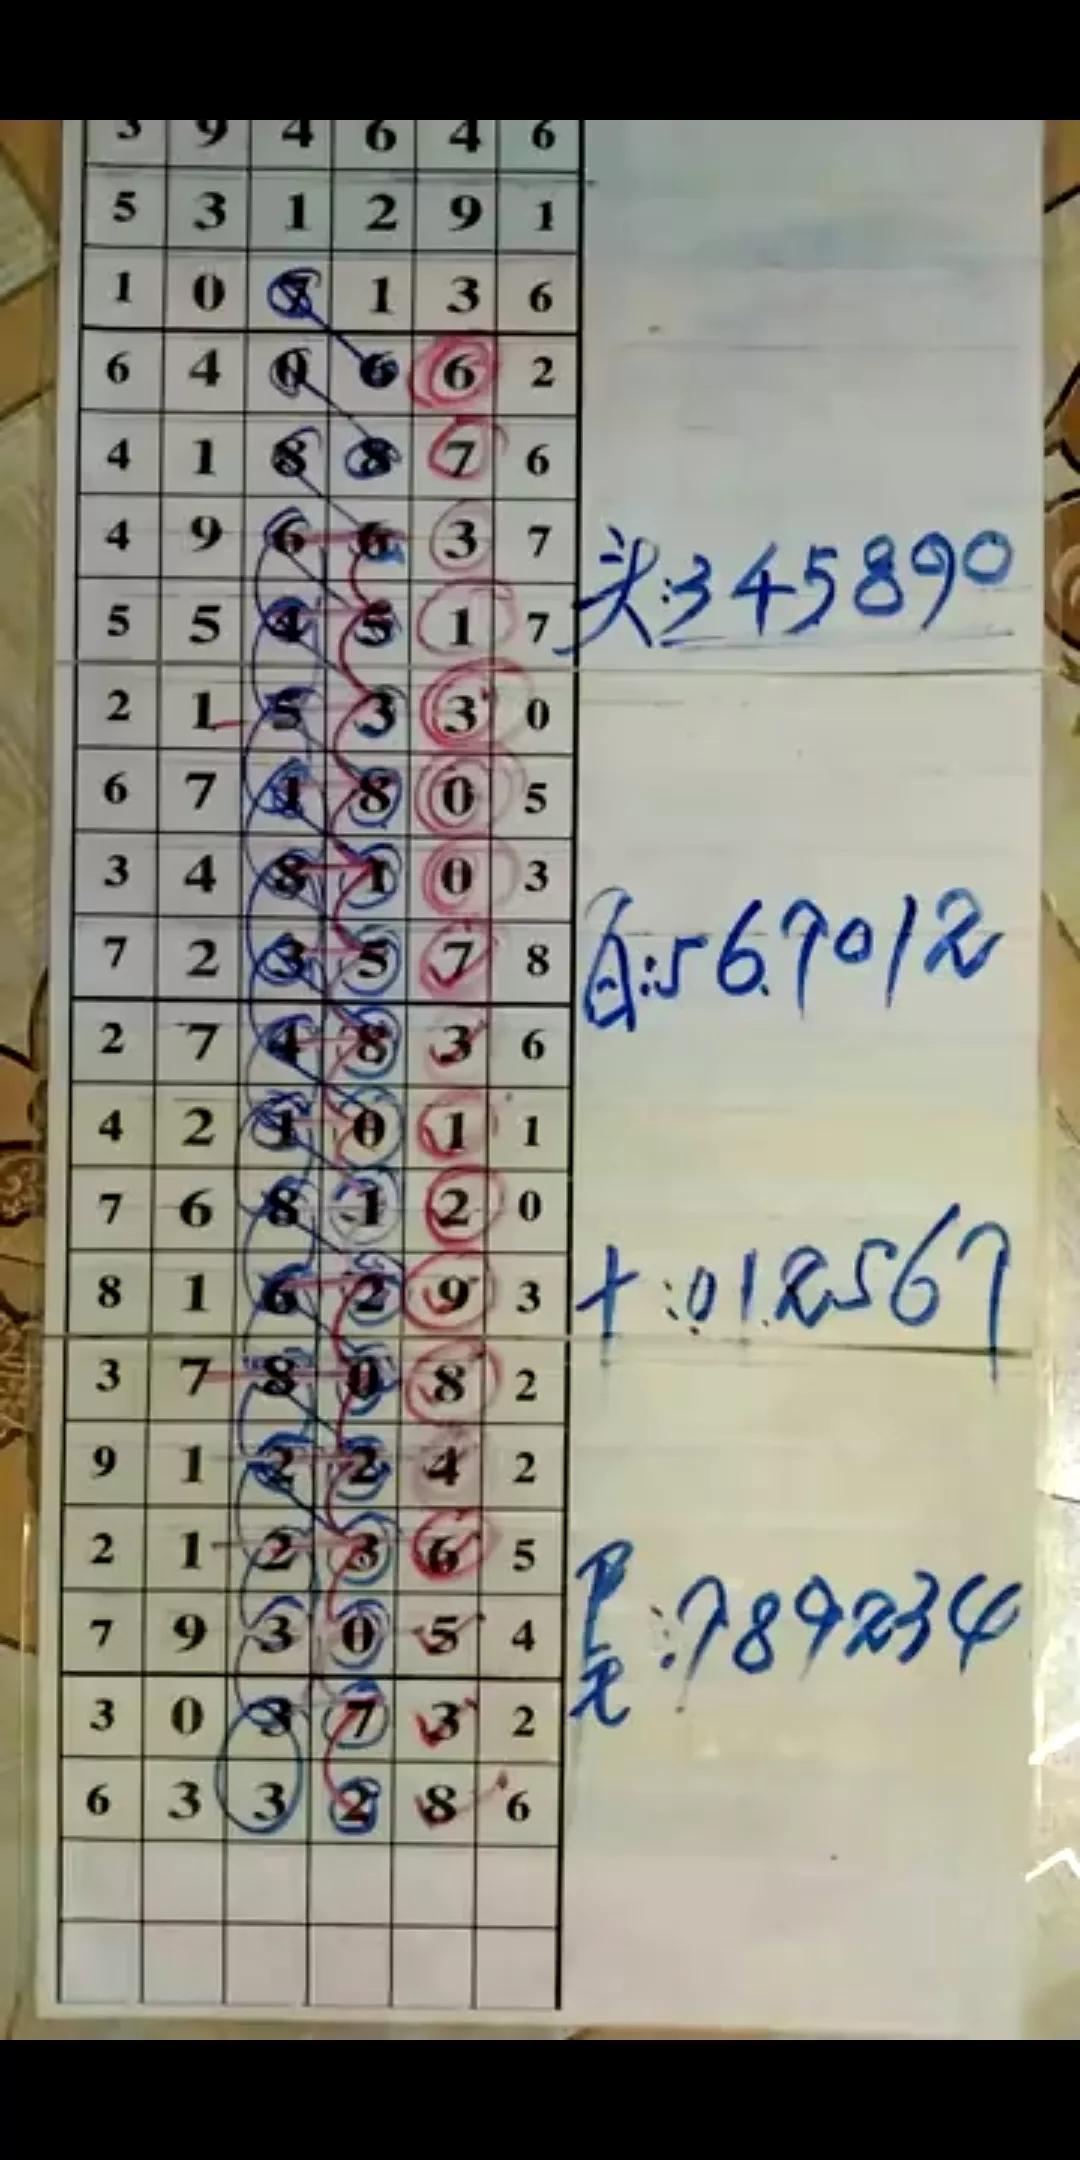 3 9 4 6 4 6
5 3 1 2 9 1
1 0 7 1 3 6
6 4 0 6 6 2
4 1 8 8 7 6
4 9 6 6 3 7
头:345890
5 5 4 5 1 7
2 1 5 3 3 0
6 7 1 8 0 5
3 4 8 1 0 3
7 2 3 5 7 8
百:567012
2 7 4 8 3 6
4 2 1 0 1 1
7 6 8 1 2 0
8 1 6 2 9 3
十:012567
3 7 8 0 8 2
9 1 2 2 4 2
2 1 2 3 6 5
7 9 3 0 5 4
尾:789234
3 0 3 7 3 2
6 3 3 2 8 6